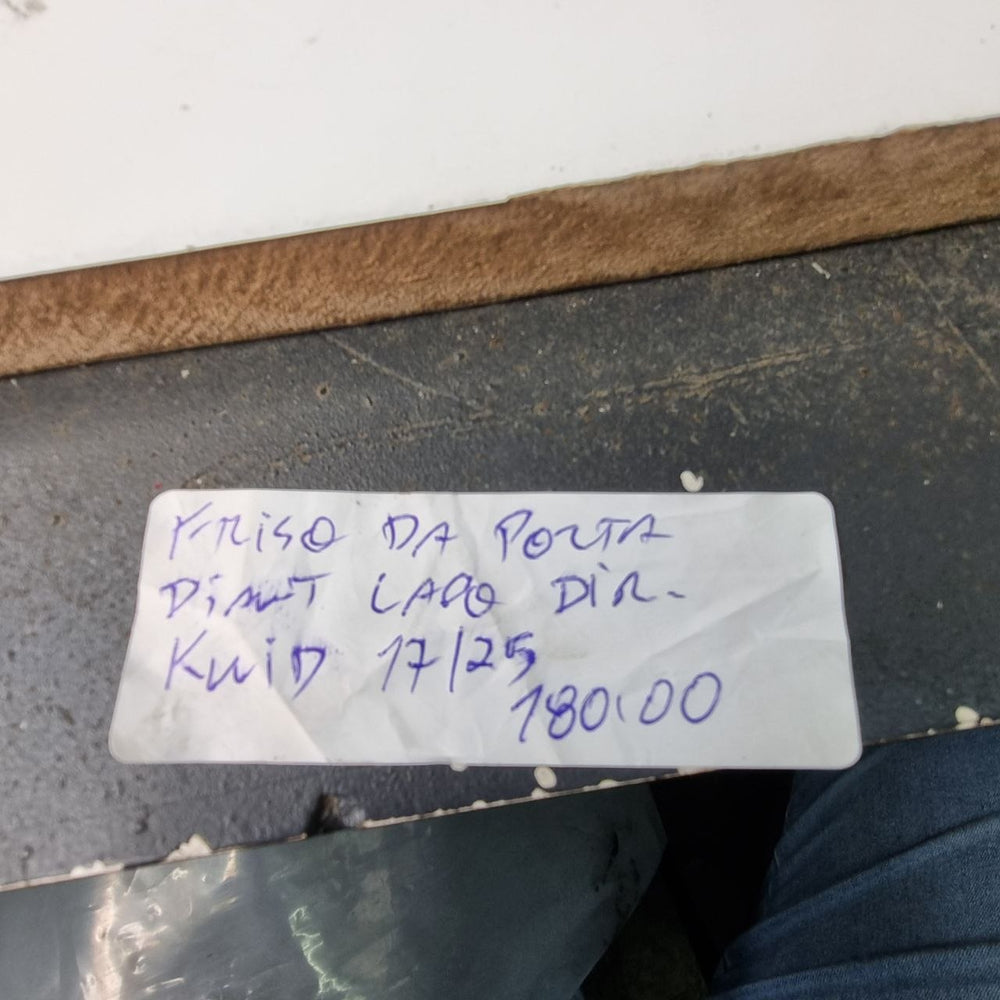 FRISO DA PORTA
DIANT LADO DIR.
KWID 17/25
180,00